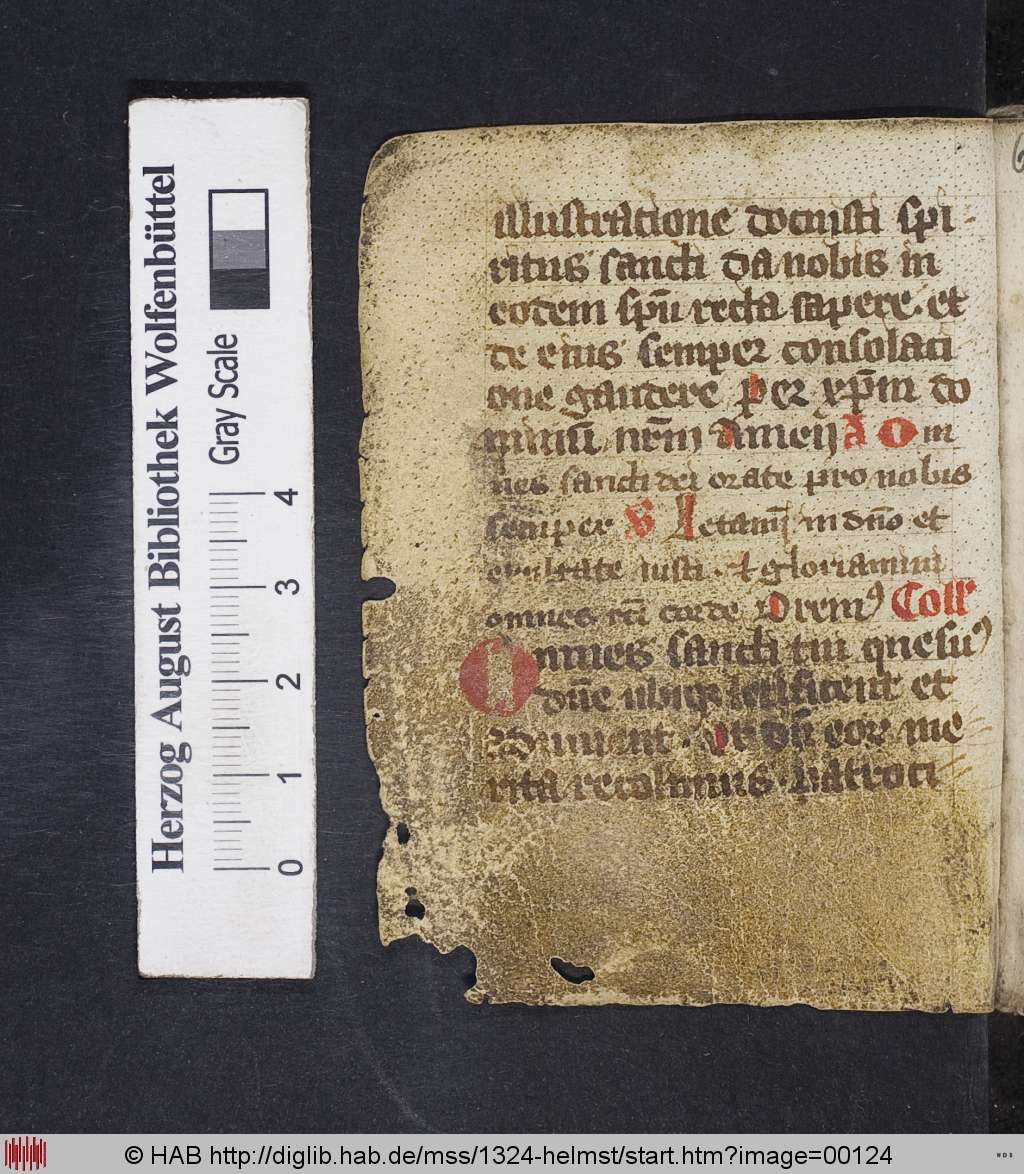 Herzog August Bibliothek Wolfenbüttel
Gray Scale
0 1 2 3 4
illustratione docuisti spi-
ritus sancti da nobis in
eodem spū recta sapere · et
de eius semper consolaci
one gaudere per xp̄m do
minū nr̄m Amen A Om
nes sancti dei orate pro nobis
semper V Letamī in dn̄o et
exultate iusti · et gloriamini
omnes rc̄ti corde Oremꝰ Coll
Omnes sancti tui quesūꝰ
dn̄e ubiqꝫ letificent et
Adiuuent · et dū eoꝝ me
rita recolimus · patroci
© HAB http://diglib.hab.de/mss/1324-helmst/start.htm?image=00124
WDB